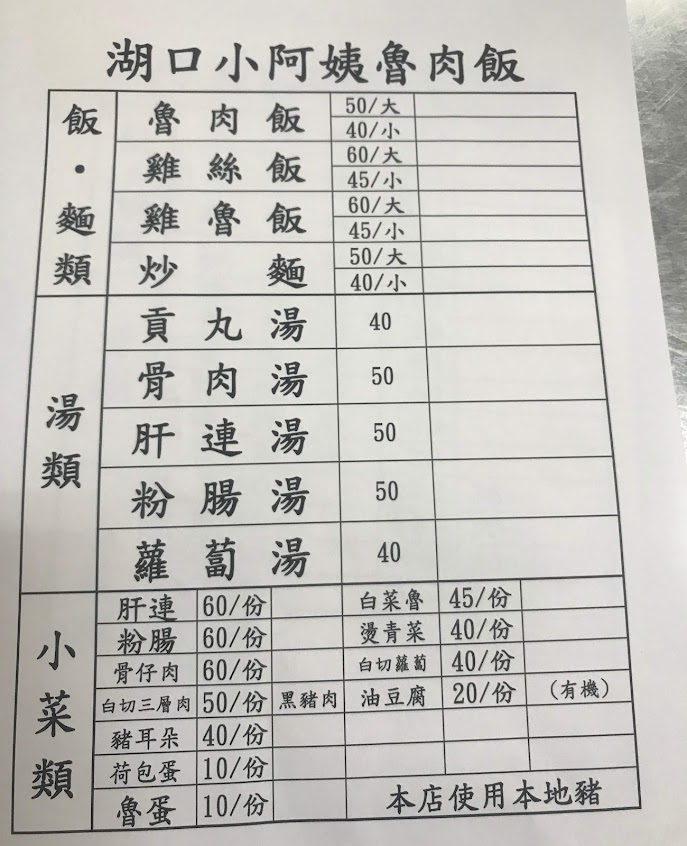 湖口小阿姨魯肉飯
飯・麵類
魯肉飯 50/大
40/小
雞絲飯 60/大
45/小
雞魯飯 60/大
45/小
炒麵 50/大
40/小
湯類
貢丸湯 40
骨肉湯 50
肝連湯 50
粉腸湯 50
蘿蔔湯 40
小菜類
肝連 60/份 白菜魯 45/份
粉腸 60/份 燙青菜 40/份
骨仔肉 60/份 白切蘿蔔 40/份
白切三層肉 50/份 黑豬肉 油豆腐 20/份 (有機)
豬耳朵 40/份
荷包蛋 10/份
魯蛋 10/份 本店使用本地豬